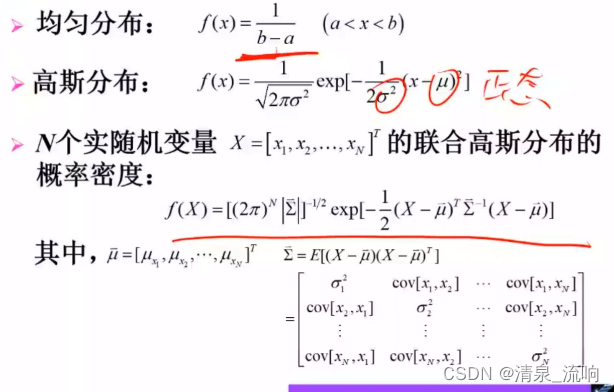 ➢ 均匀分布： f(x) = 1/(b−a) (a < x < b)
➢ 高斯分布： f(x) = 1/√(2πσ²) exp[−1/(2σ²) (x−μ)²] 正态
➢ N个实随机变量 X = [x₁, x₂, …, x_N]^T 的联合高斯分布的
概率密度：
f(X) = [(2π)^N |Σ̄|]^(−1/2) exp[−1/2 (X−μ̄)^T Σ̄^(−1) (X−μ̄)]
其中， μ̄ = [μ_{x₁}, μ_{x₂}, ⋯, μ_{x_N}]^T Σ̄ = E[(X−μ̄)(X−μ̄)^T]
= [ σ₁² cov[x₁,x₂] ⋯ cov[x₁,x_N]
cov[x₂,x₁] σ₂² ⋯ cov[x₂,x_N]
⋮ ⋮ ⋮ ⋮
cov[x_N,x₁] cov[x_N,x₂] ⋯ σ_N² ]
CSDN @清泉_流响